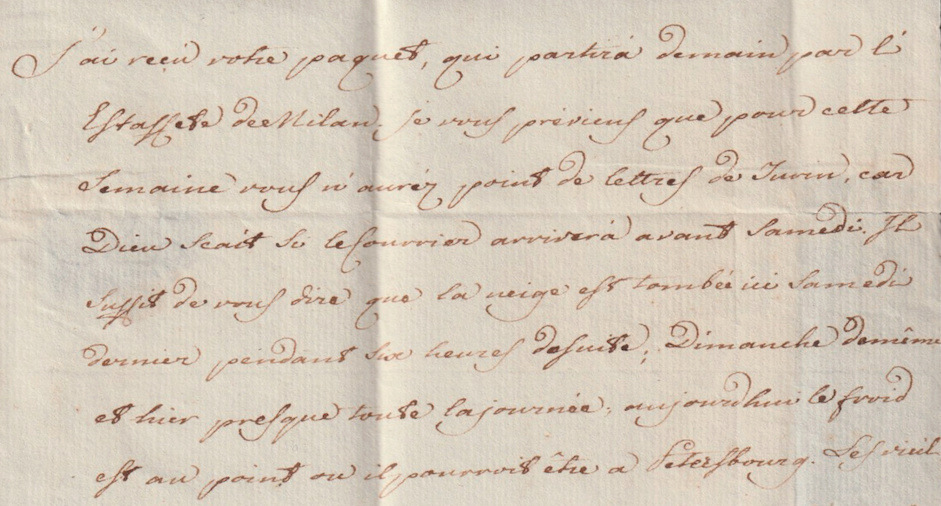 J'ai reçu votre paquet, qui partira demain par l'
Estaffete de Milan. Je vous previens que pour cette
semaine vous n'auréz point de lettres de Turin, car
Dieu scait si le Courrier arrivera avant Samedi. Il
suffit de vous dire que la neige est tombée ici Samedi
dernier pendant six heures desuite; Dimanche demême
et hier presque toute lajournée; aujourdhui le froid
est au point ou il pourroit être a Petersbourg. Les vieil